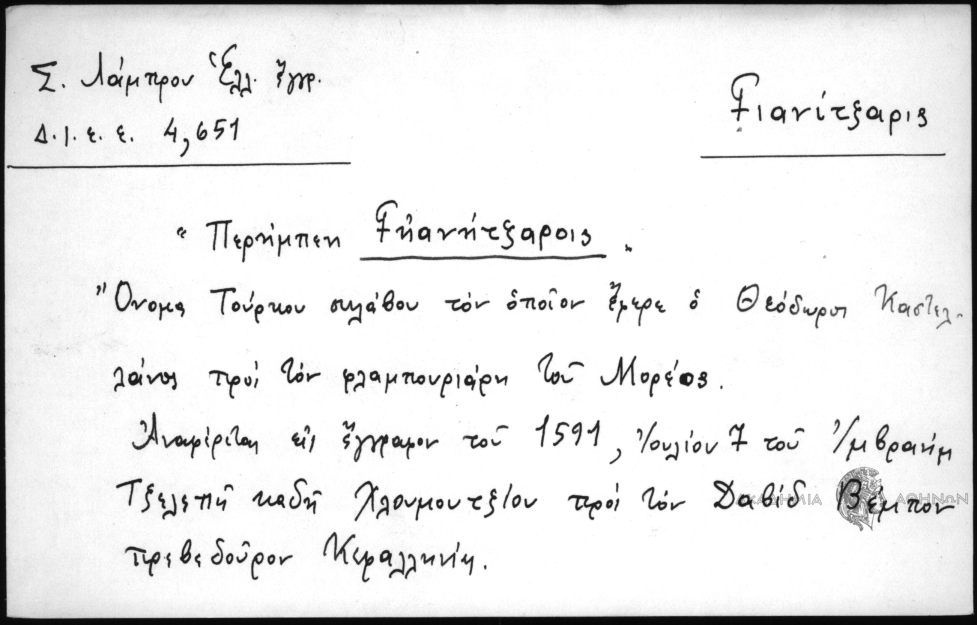 Σ. Λάμπρου Ἑλλ. ἔγγρ.
Δ.Ι.Ε.Ε. 4,651
Γιανίτξαρις
"Περήμπεη Γηανήτξαροις"
Ὄνομα Τούρκου σκλάβου τὸν ὁποῖον ἔφερε ὁ Θεόδωρος Καστελ-
λάνος πρὸς τὸν φλαμπουριάρη τοῦ Μορέως.
Ἀναφέρεται εἰς ἔγγραφον τοῦ 1591, Ἰουλίου 7 τοῦ Ἰμβραήμ
Τξελεπῆ καδῆ Χλουμουτξίου πρὸς τὸν Δαβίδ Βέμπον
πρεβεδοῦρον Κεφαλληνίας.
ΑΚΑΔΗΜΙΑ ΑΘΗΝΩΝ